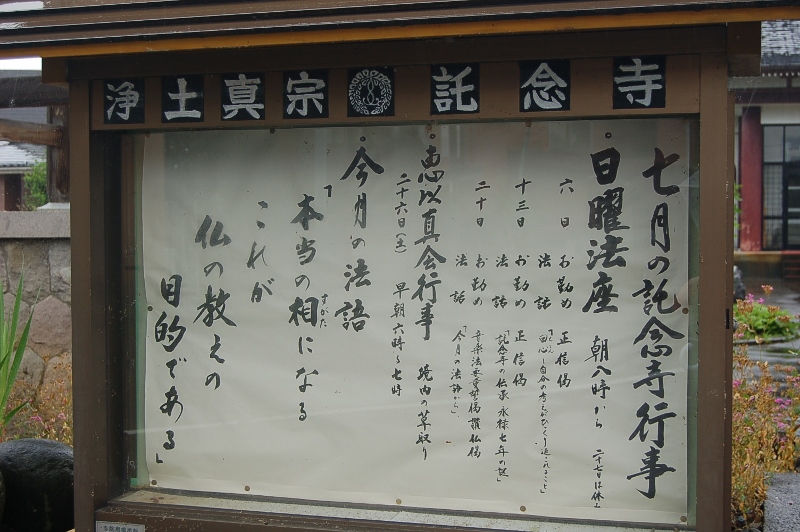 浄土真宗 託念寺
七月の託念寺行事
・日曜法座 朝八時から 二十七日は休み
六日 お勤め 正信偈
法話
十三日 お勤め 正信偈
法話 「託念寺の伝承 永禄七年の謎」
二十日 お勤め 音楽法要 重誓偈 讃仏偈
法話 「今月の法語から」
・恵以真会行事 境内の草取り
二十六日(土) 早朝六時〜七時
・今月の法語
「本当の相になる
すがた
これが
仏の教えの
目的である」